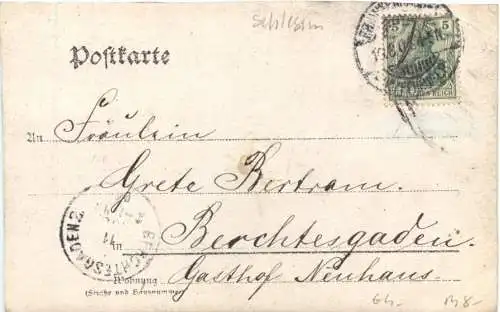 Schlesien
Postkarte
5 5
An Fräulein
Grete Bertram.
in Berchtesgaden.
BERCHTESGADEN 2
11
Gasthof Neuhaus.
Wohnung
(Straße und Hausnummer)